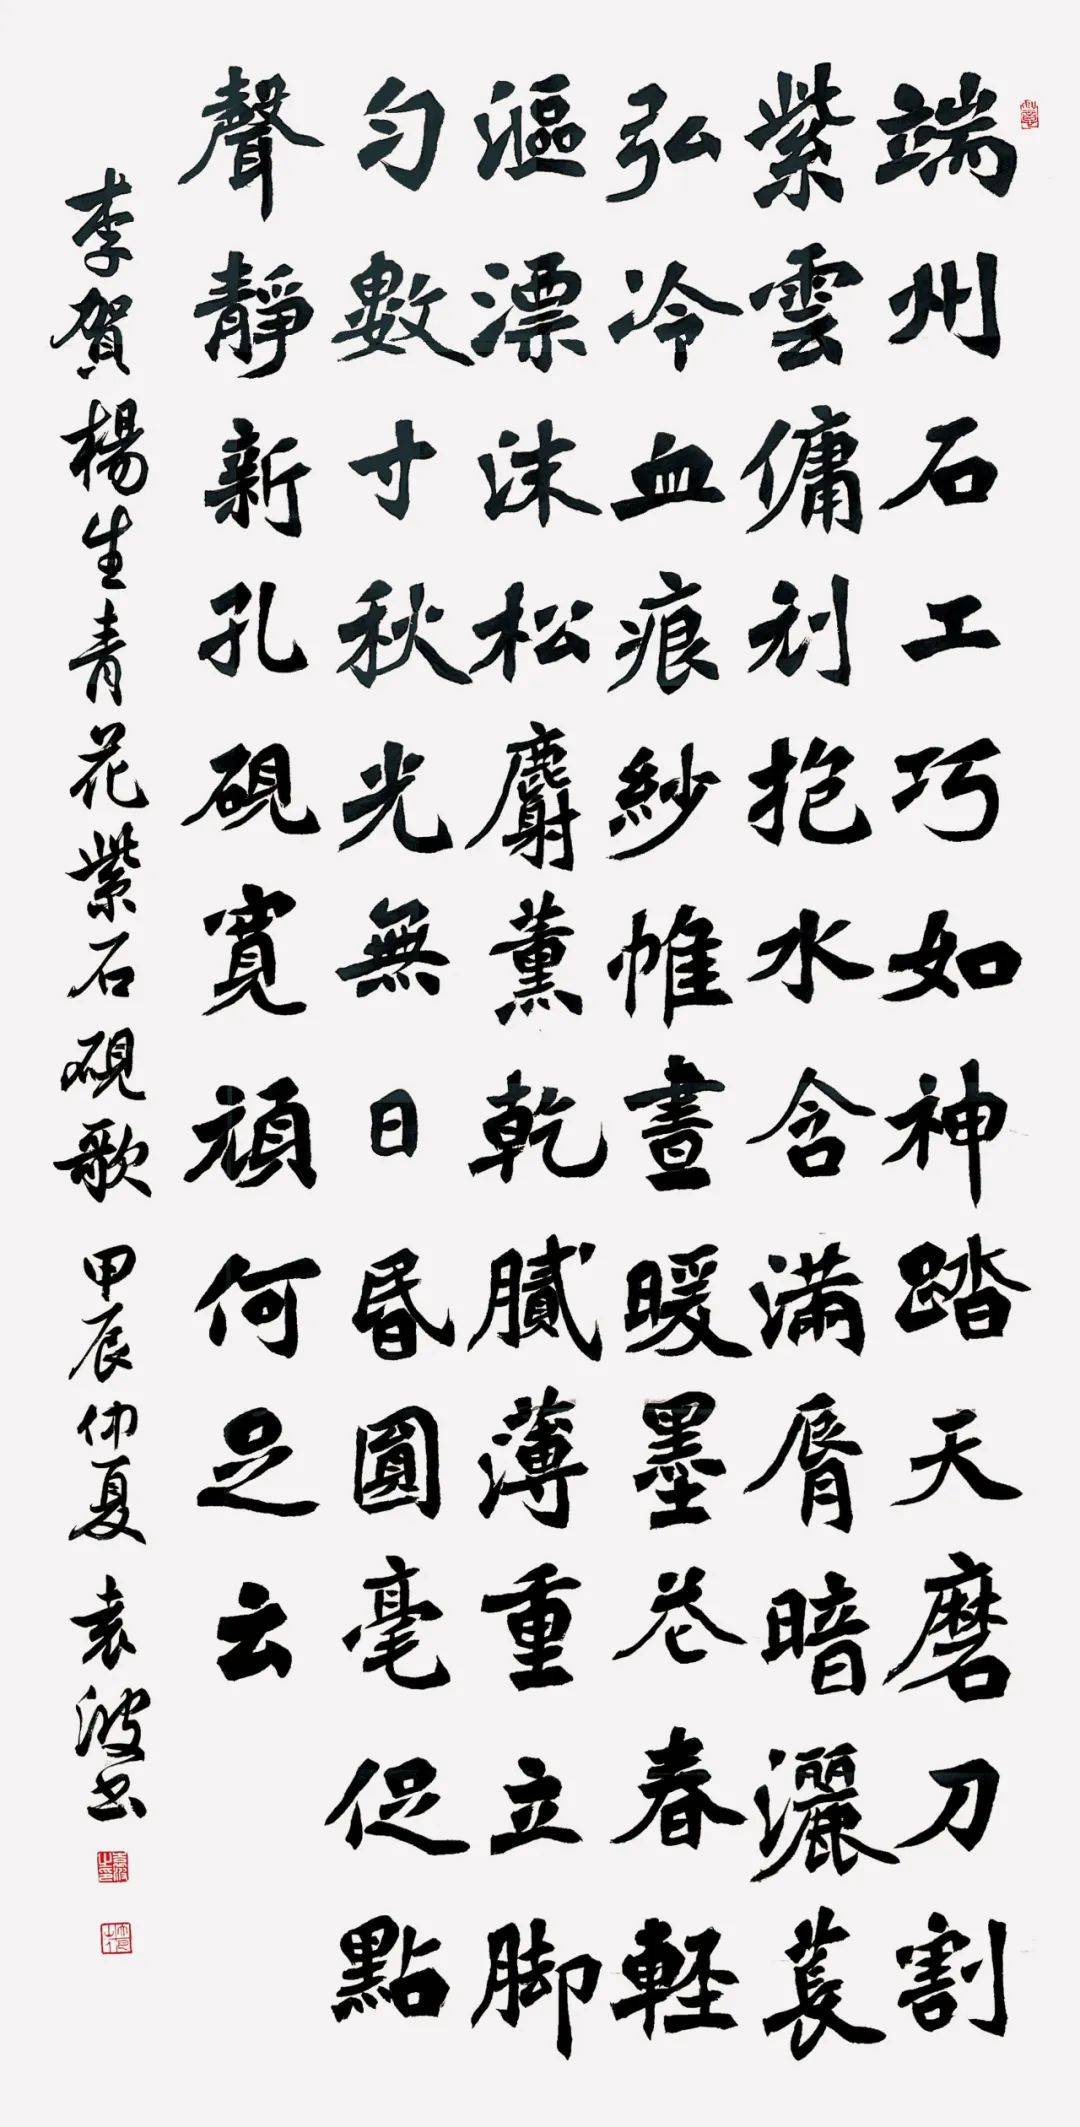 端州石工巧如神踏天磨刀割
紫雲傭刓抱水含滿脣暗灑萇
弘冷血痕紗帷晝暖墨花春輕
漚漂沫松麝薰乾膩薄重立脚
勻數寸秋光無日昏圓毫促點
聲靜新孔硯寬頑何足云
李賀楊生青花紫石硯歌 甲辰仲夏 袁波书